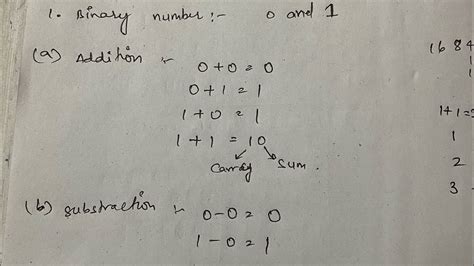 1. Binary number :- 0 and 1
(a) Addition :-
0+0=0
0+1=1
1+0=1
1+1=10
Carray Sum.
(b) Substraction :-
0-0=0
1-0=1
16 8 4
1
1
1+1=
1
2
3